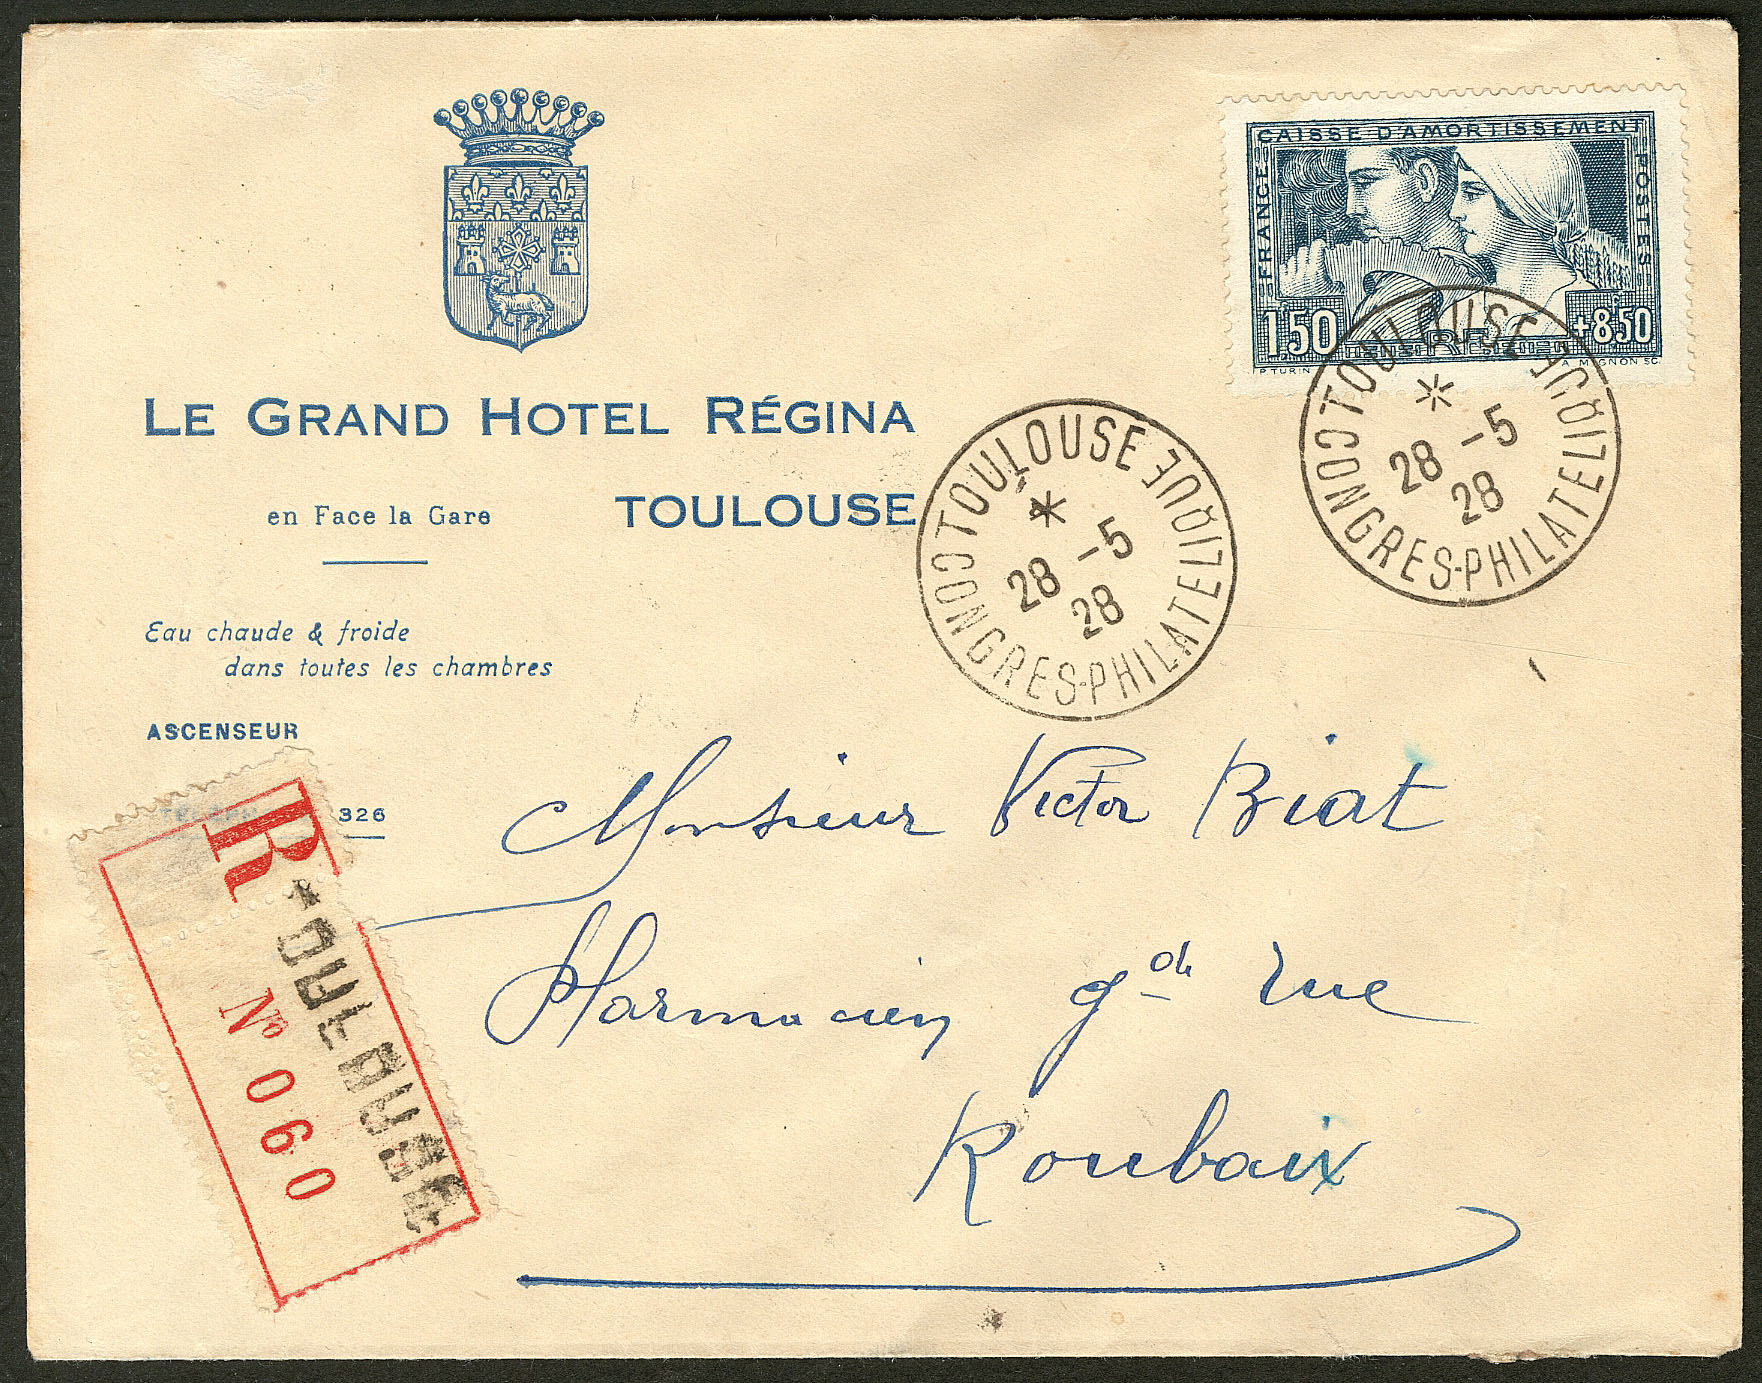 CAISSE D'AMORTISSEMENT
FRANCE
POSTES
1.50
RF
+8.50
P. TURIN
A. MIGNON SC.
LE GRAND HOTEL RÉGINA
en Face la Gare TOULOUSE
Eau chaude & froide
dans toutes les chambres
ASCENSEUR
326
TOULOUSE
CONGRES-PHILATELIQUE
28 -5
28
TOULOUSE
CONGRES-PHILATELIQUE
28 -5
28
R
TOULOUSE
No 060
Monsieur Victor Biat
Pharmacien gde rue
Roubaix